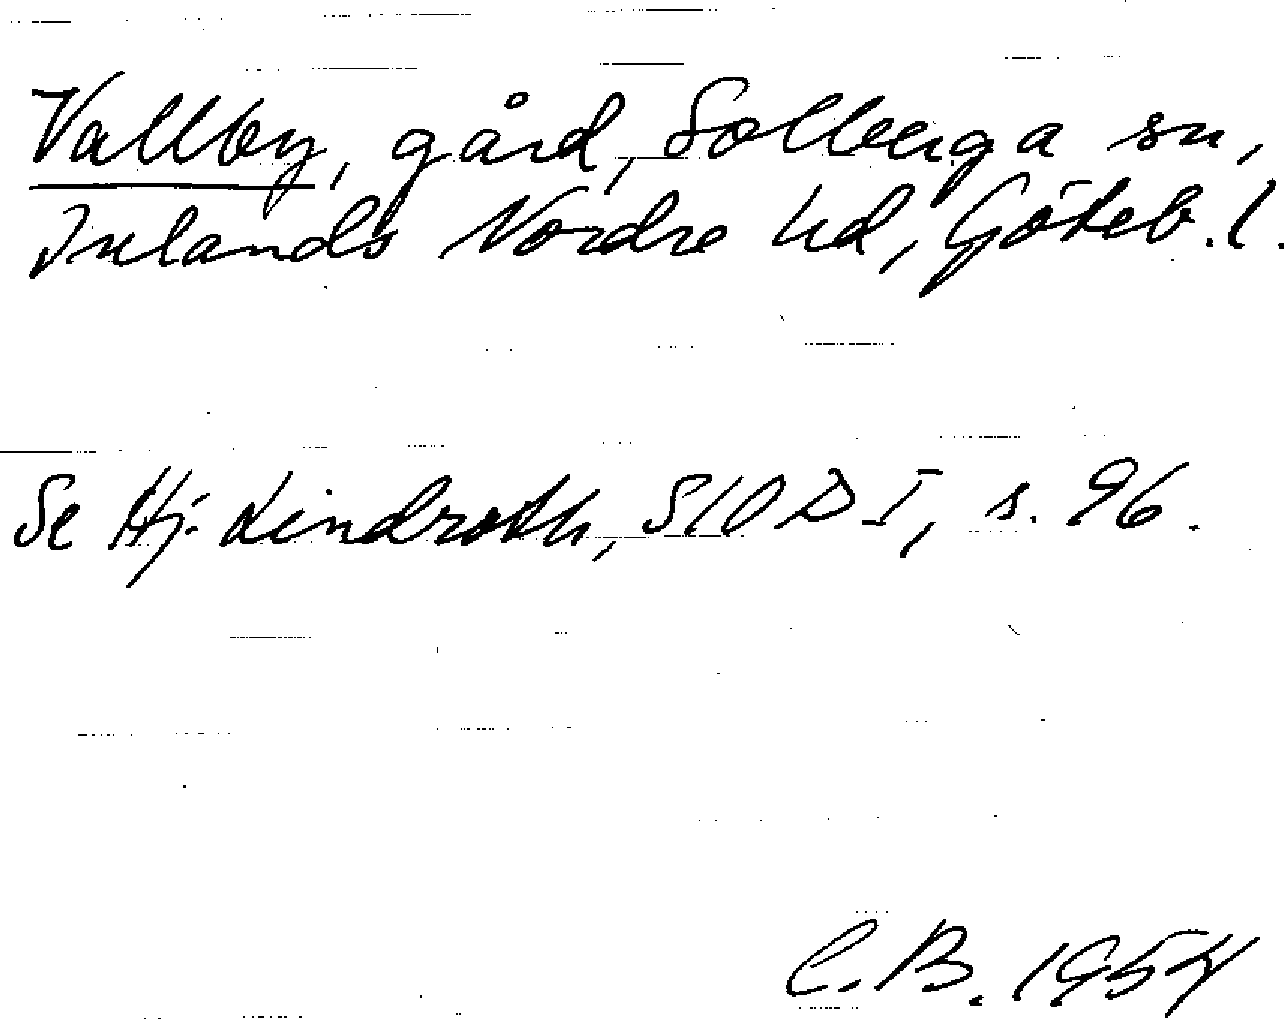 Vallby, gård, Solberga sn,
Inlands Nordre hd, Göteb. l.
Se Hj. Lindroth, SIOD I, s. 96.
C.B. 1954